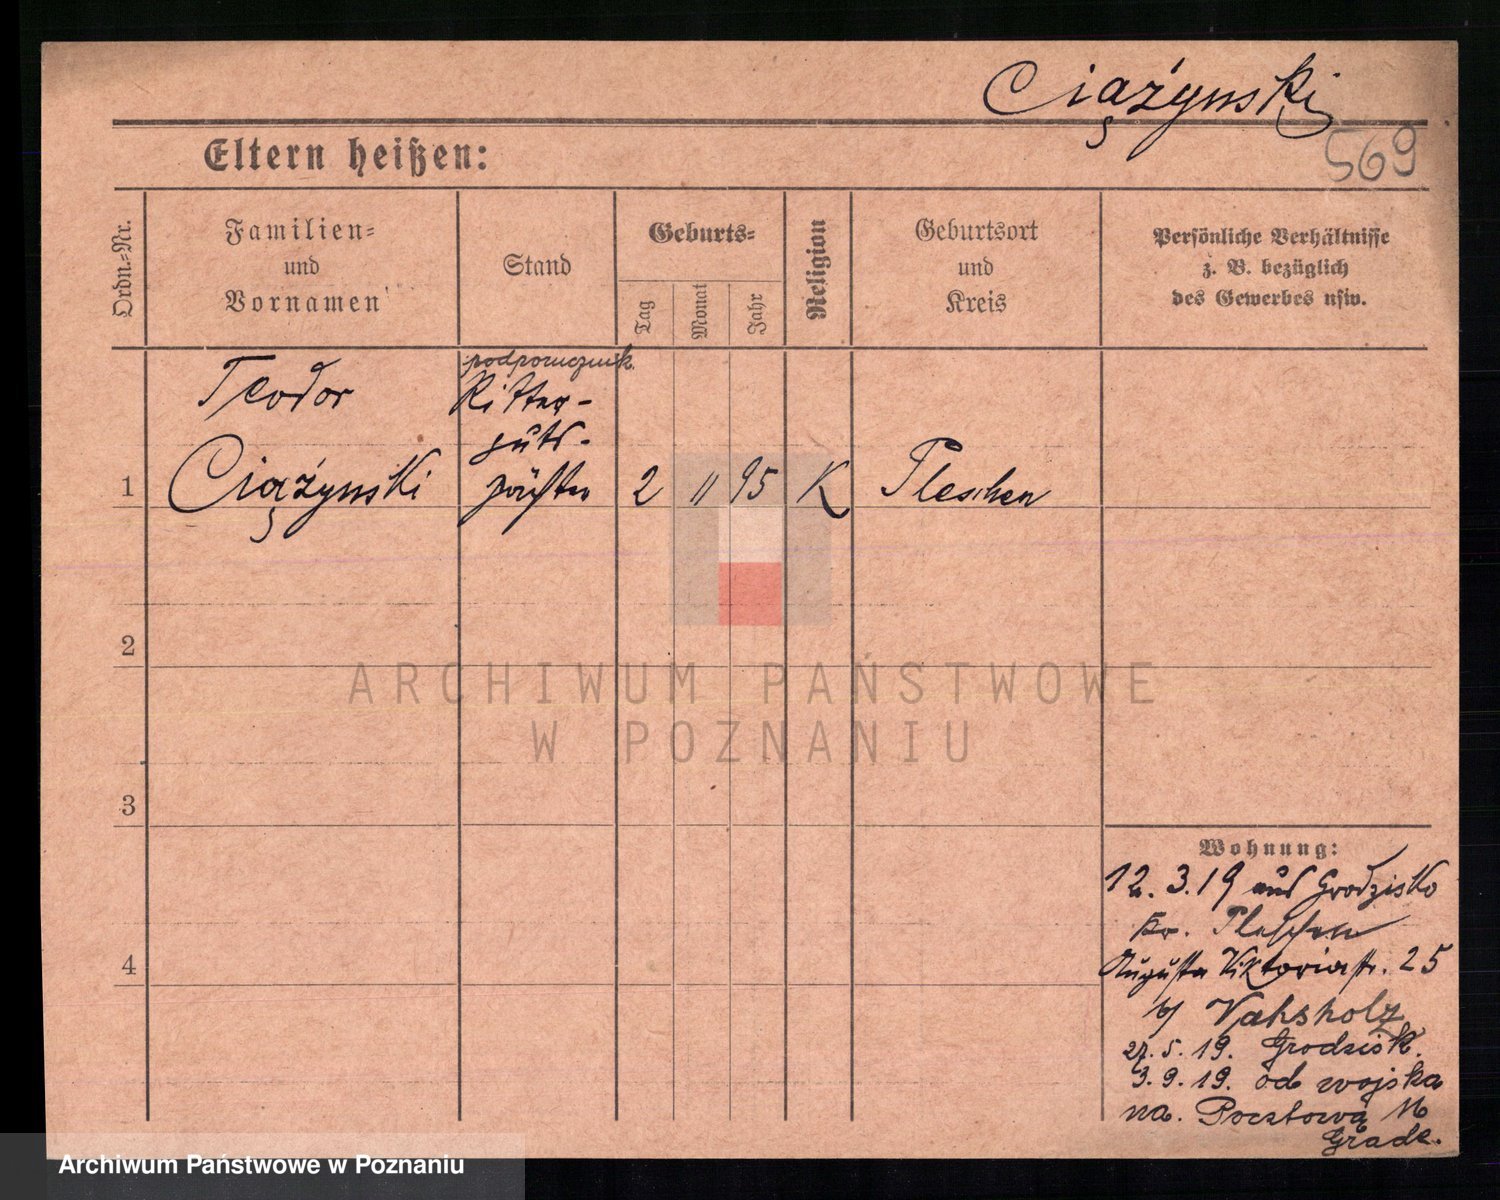 Ciążynski
569
Eltern heißen:
Ordn.-Nr.
Familien-
und
Vornamen
Stand
Geburts-
Tag
Monat
Jahr
Religion
Geburtsort
und
Kreis
Persönliche Verhältnisse
z. B. bezüglich
des Gewerbes usw.
podporucznik
Teodor
Ritter-
guts-
1
Ciążynski
pächter
2
11
95
K
Pleschen
2
ARCHIWUM PAŃSTWOWE
W POZNANIU
3
Wohnung:
12. 3. 19 aus Grodzisko
Kr. Pleschen
4
Augusta Viktoriastr. 25
b/
27. 5. 19. Grodzisk.
3. 9. 19. od wojska
na. Pocztową
Archiwum Państwowe w Poznaniu